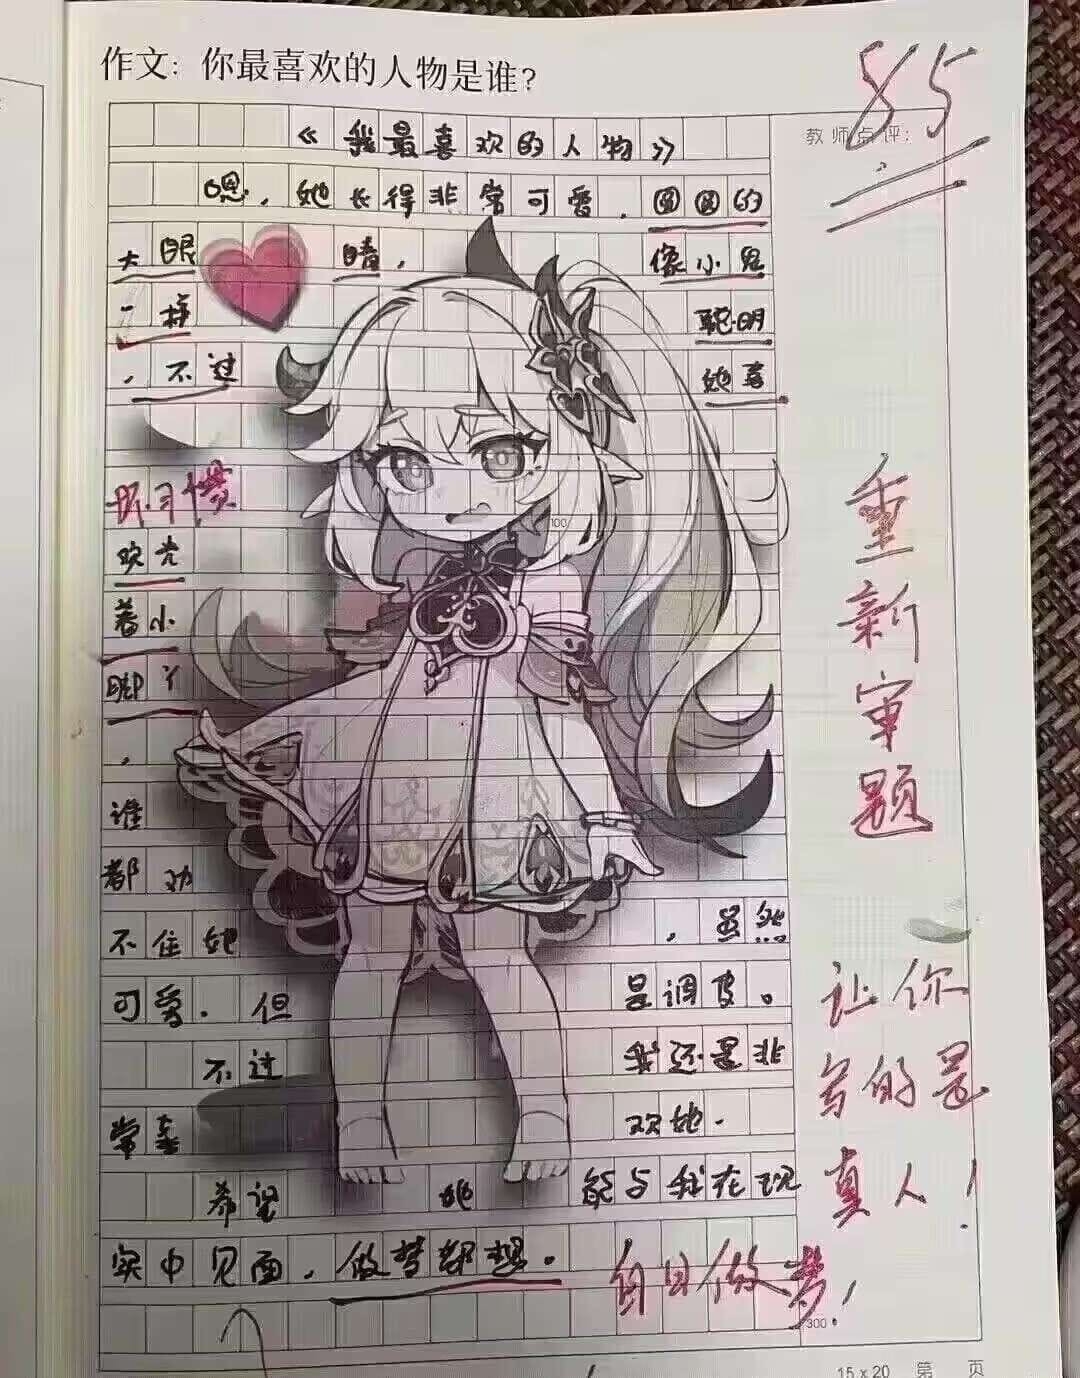 作文：你最喜欢的人物是谁？
85
教师点评：
《我最喜欢的人物》
嗯，她长得非常可爱，圆圆的
大眼睛，像小鹿
一样聪明
，不过她喜
坏习惯
欢光
着小
脚丫
，
谁
都劝
不住她，虽然
可爱，但是调皮。
不过我还是非
常喜欢她。
希望她能与我在现
实中见面，做梦都想。
白日做梦！
重新审题
让你
写的是
真人！
100
300
15x20 第 页